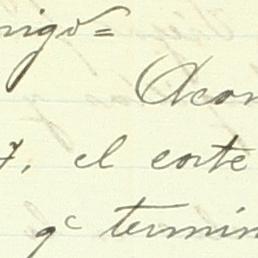 migo=
Acom
7, el corte
qe termin